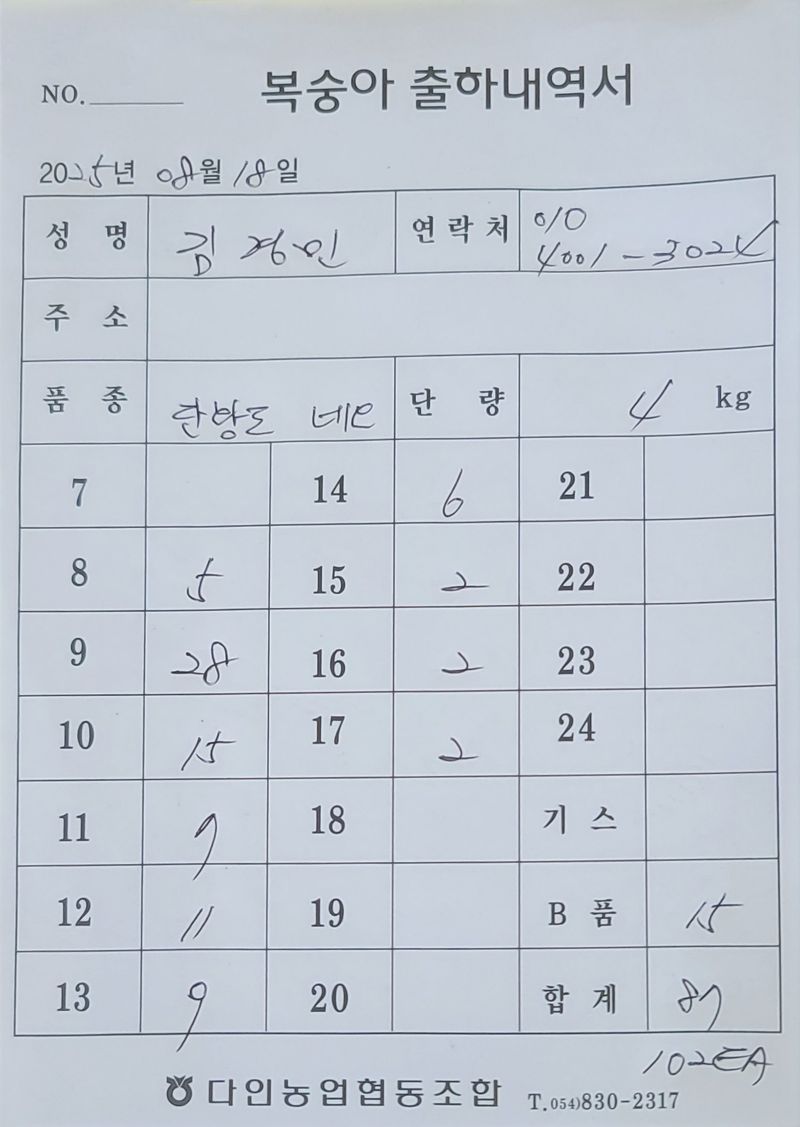 NO.
복숭아 출하내역서
2025년 08월 18일
성 명 김경민 연락처 010
4001-3024
주 소
품 종 단 량 4 kg
7 14 6 21
8 5 15 2 22
9 28 16 2 23
10 15 17 2 24
11 7 18 기 스
12 11 19 B 품 15
13 9 20 합 계 87
102EA
다인농업협동조합 T.054)830-2317